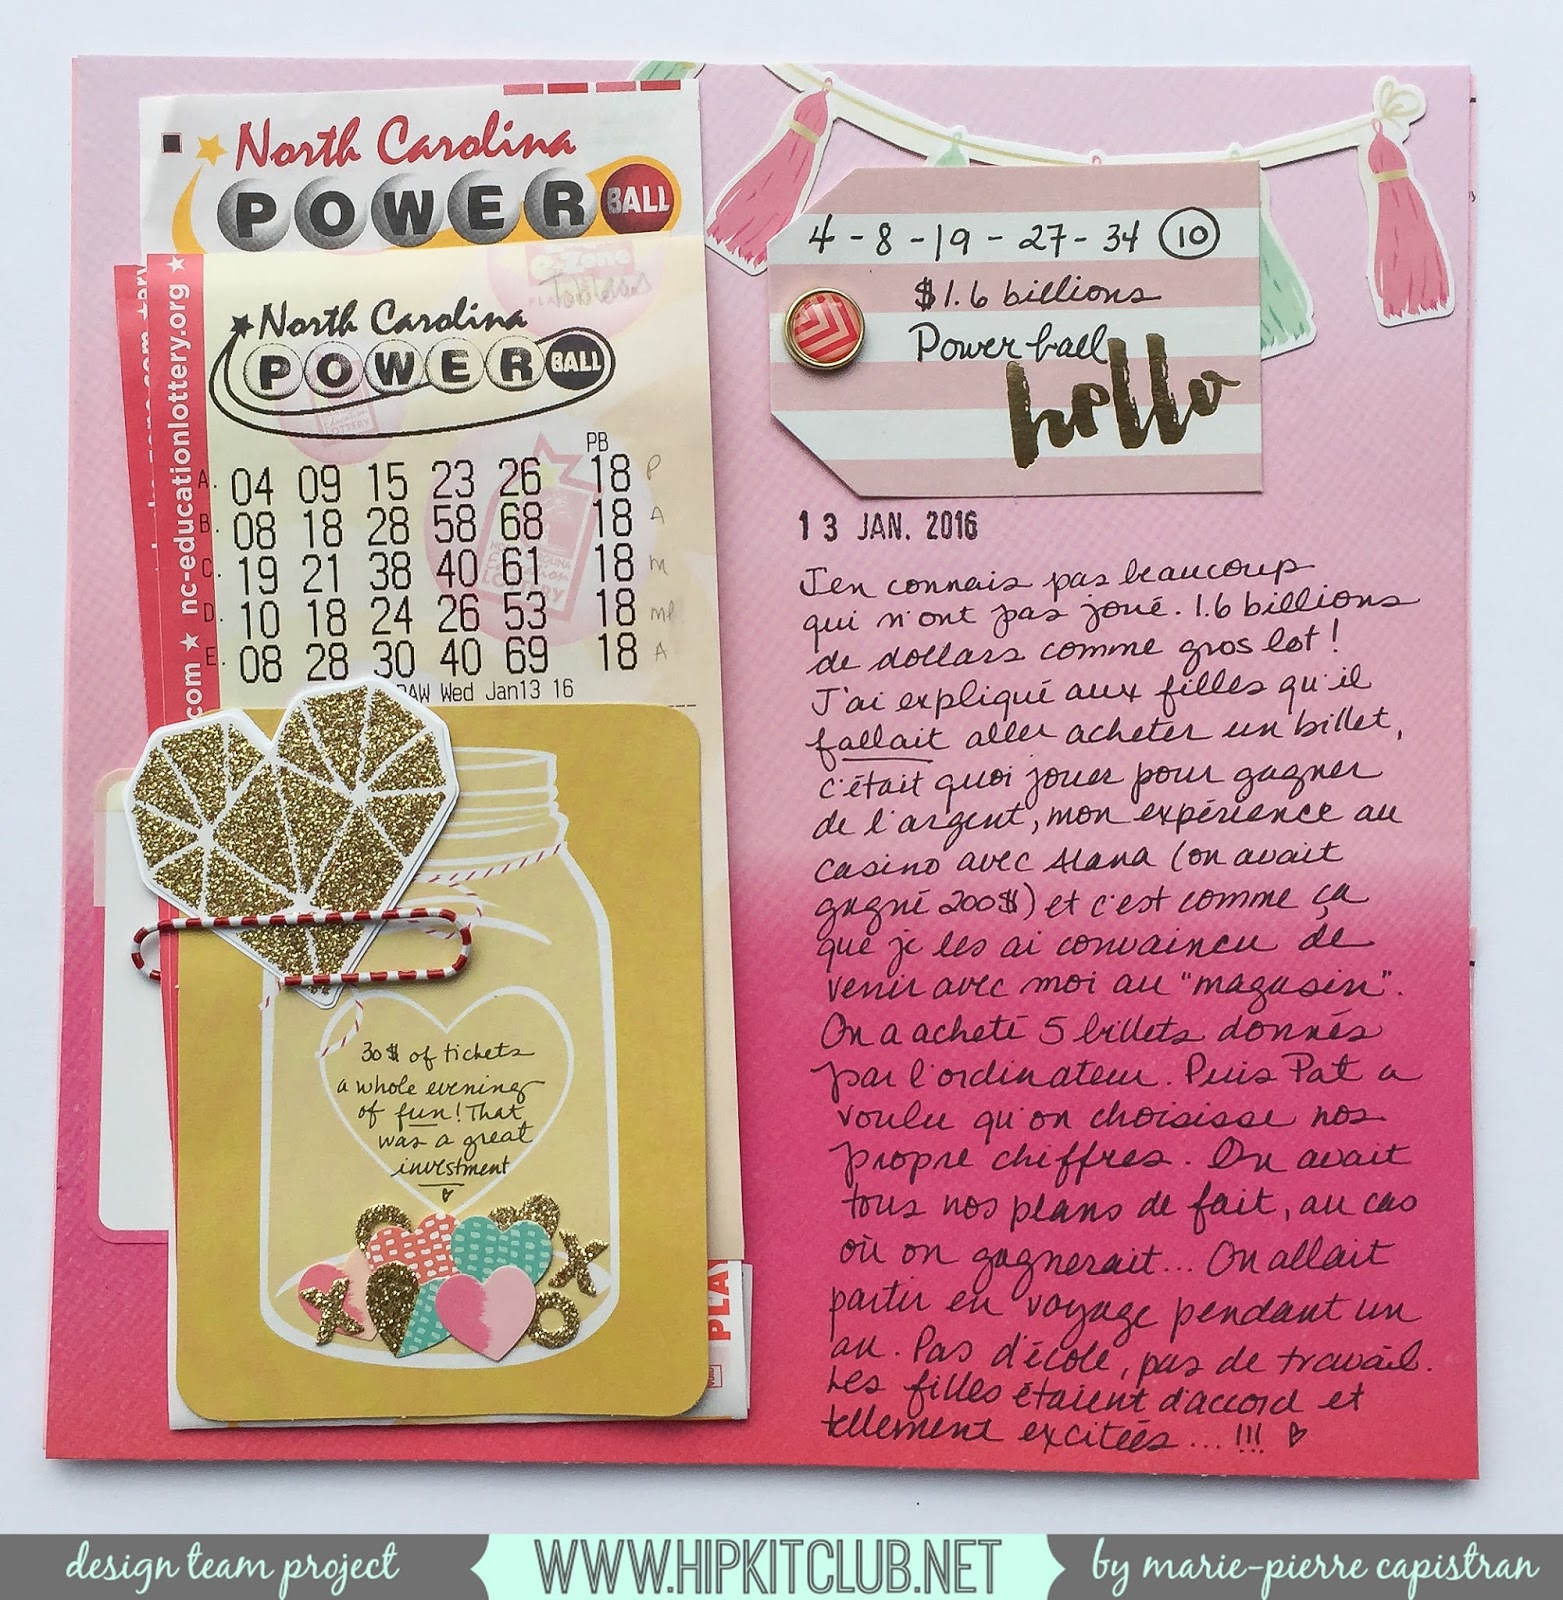 North Carolina
POWER BALL
nc-educationlottery.org
.com
North Carolina
POWER BALL
PB
A. 04 09 15 23 26 18 P
B. 08 18 28 58 68 18 A
C. 19 21 38 40 61 18 M
D. 10 18 24 26 53 18 MP
E. 08 28 30 40 69 18 A
Wed Jan13 16
30$ of tickets
a whole evening
of fun! That
was a great
investment
X X O
PLA
4-8-19-27-34 10
$1.6 billions
Powerball
hello
13 JAN. 2016
J'en connais pas beaucoup
qui n'ont pas joué. 1.6 billions
de dollars comme gros lot!
J'ai expliqué aux filles qu'il
fallait aller acheter un billet,
c'était quoi jouer pour gagner
de l'argent, mon expérience au
casino avec Alana (on avait
gagné 200$) et c'est comme ça
que je les ai convaincu de
venir avec moi au "magasin".
On a acheté 5 billets donnés
par l'ordinateur. Puis Pat a
voulu qu'on choisisse nos
propre chiffres. On avait
tous nos plans de fait, au cas
où on gagnerait... On allait
partir en voyage pendant un
an. Pas d'école, pas de travail.
Les filles étaient d'accord et
tellement excitées...!!!
design team project
WWW.HIPKITCLUB.NET
by marie-pierre capistran